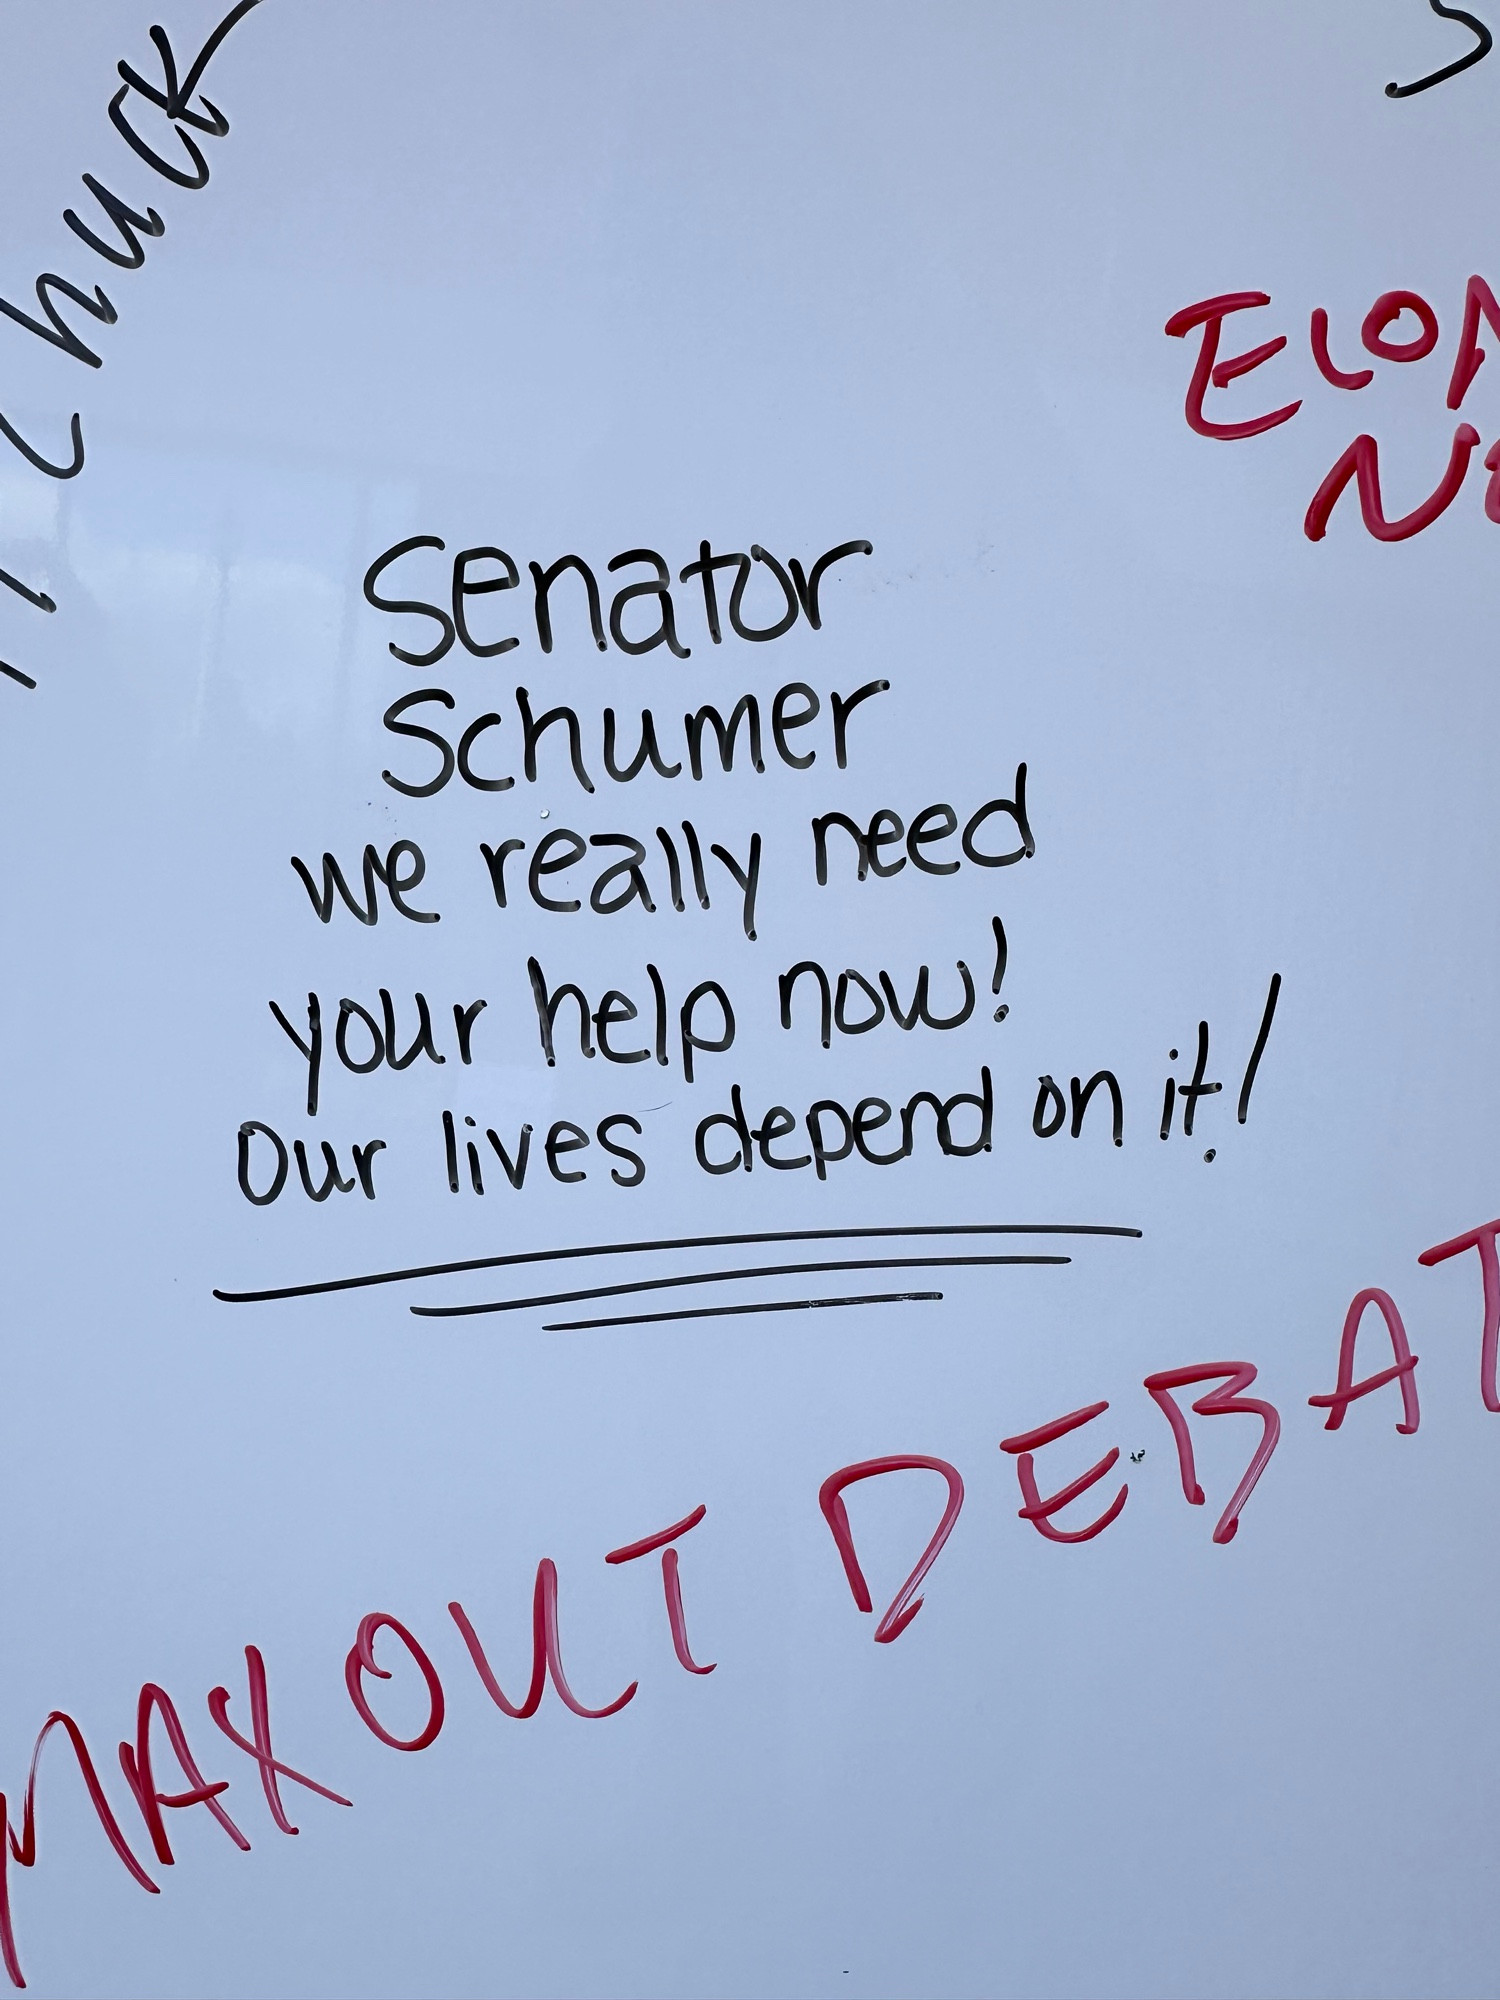 Chuck
ELON
Senator
Schumer
we really need
your help now!
Our lives depend on it!
MAX OUT DEBAT